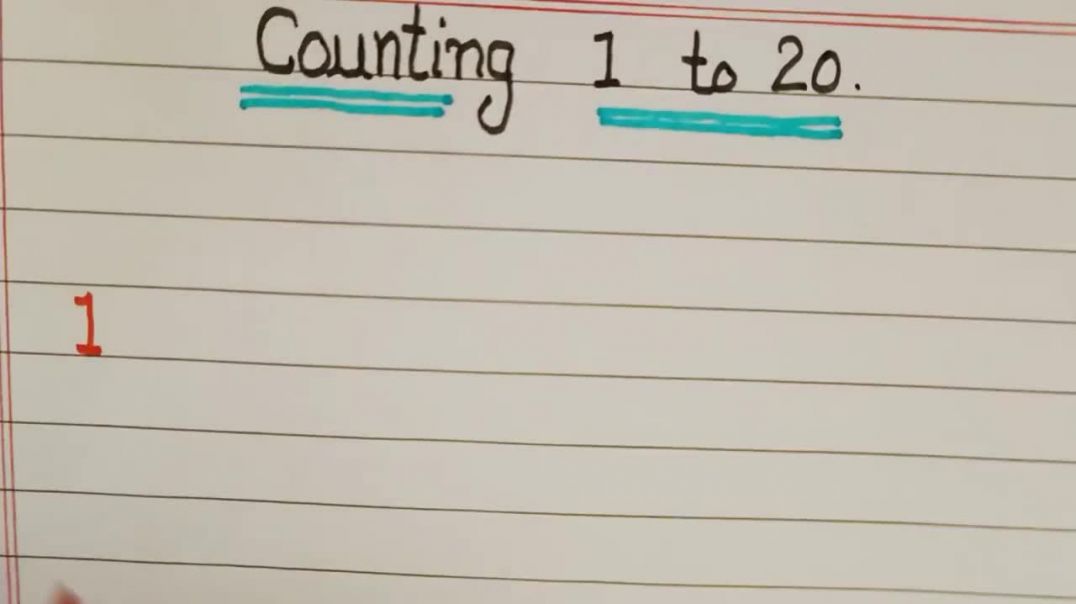 Counting 1 to 20.
1